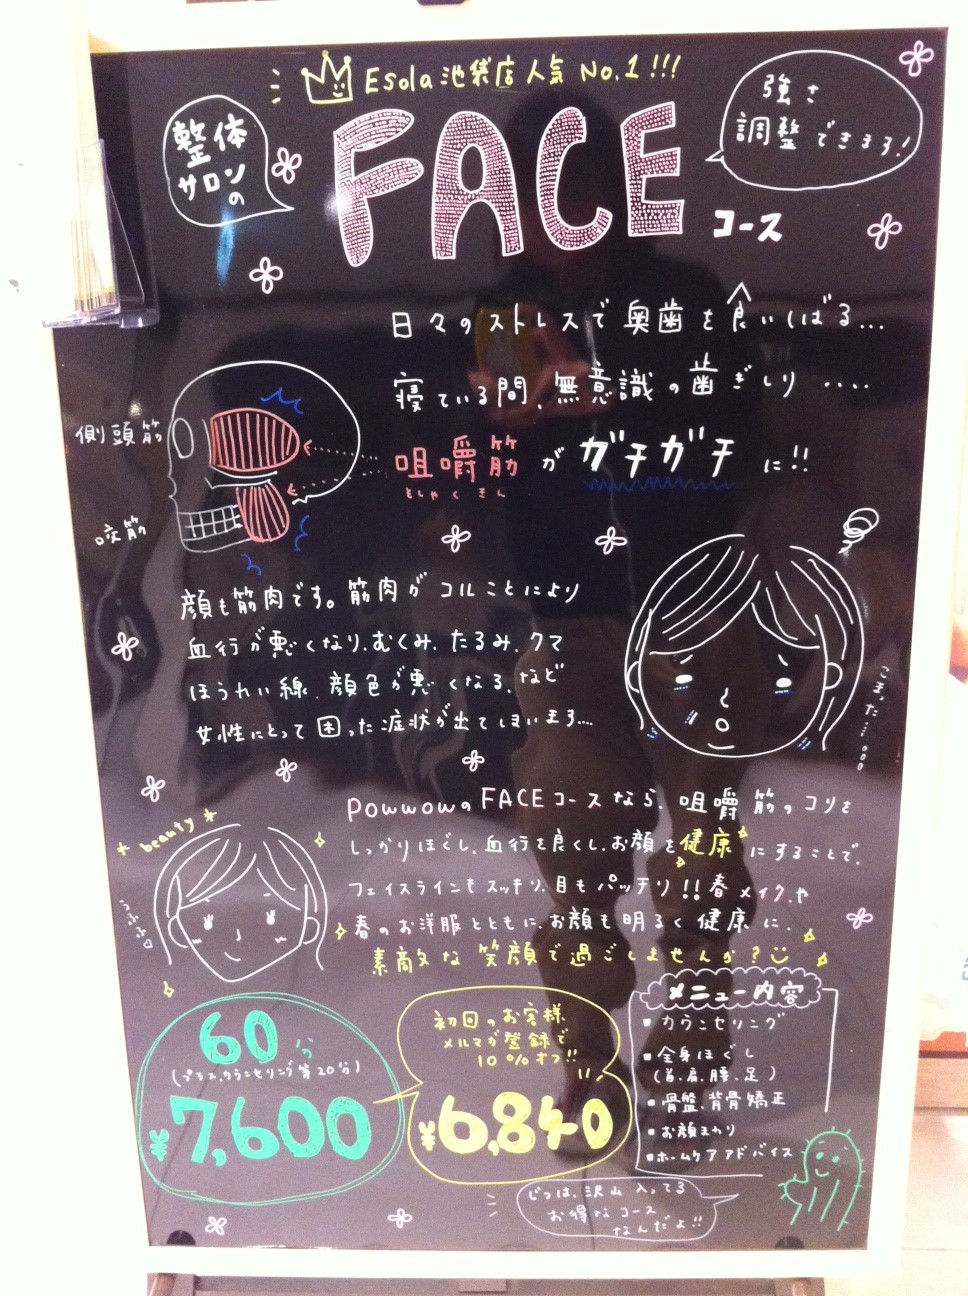 Esola池袋店人気 No.1!!!
整体
サロン
の
FACE
コース
強さ
調整できます!
日々のストレスで奥歯を食いしばる...
寝ている間、無意識の歯ぎしり ....
側頭筋
咀嚼筋がガチガチに!!
そしゃくきん
咬筋
顔も筋肉です。筋肉がコルことにより
血行が悪くなり、むくみ、たるみ、クマ
ほうれい線、顔色が悪くなる、など
女性にとって困った症状が出てしまいます....
こまった...
beauty
うふふ♡
powwowのFACEコースなら、咀嚼筋のコリを
しっかりほぐし、血行を良くし、お顔を健康にすることで、
フェイスラインもスッキリ、目もパッチリ!!春メイクや
春のお洋服とともに、お顔も明るく健康に、
素敵な笑顔で過ごしませんか?
60分
(プラス、カウンセリング等20分)
¥7,600
初回のお客様、
メルマガ登録で
10%オフ!!
¥6,840
メニュー内容
▪カウンセリング
▪全身ほぐし
(首、肩、腰、足)
▪骨盤、背骨矯正
▪お顔まわり
▪ホームケアアドバイス
じつは、沢山入ってる
お得なコース
なんだよ!!